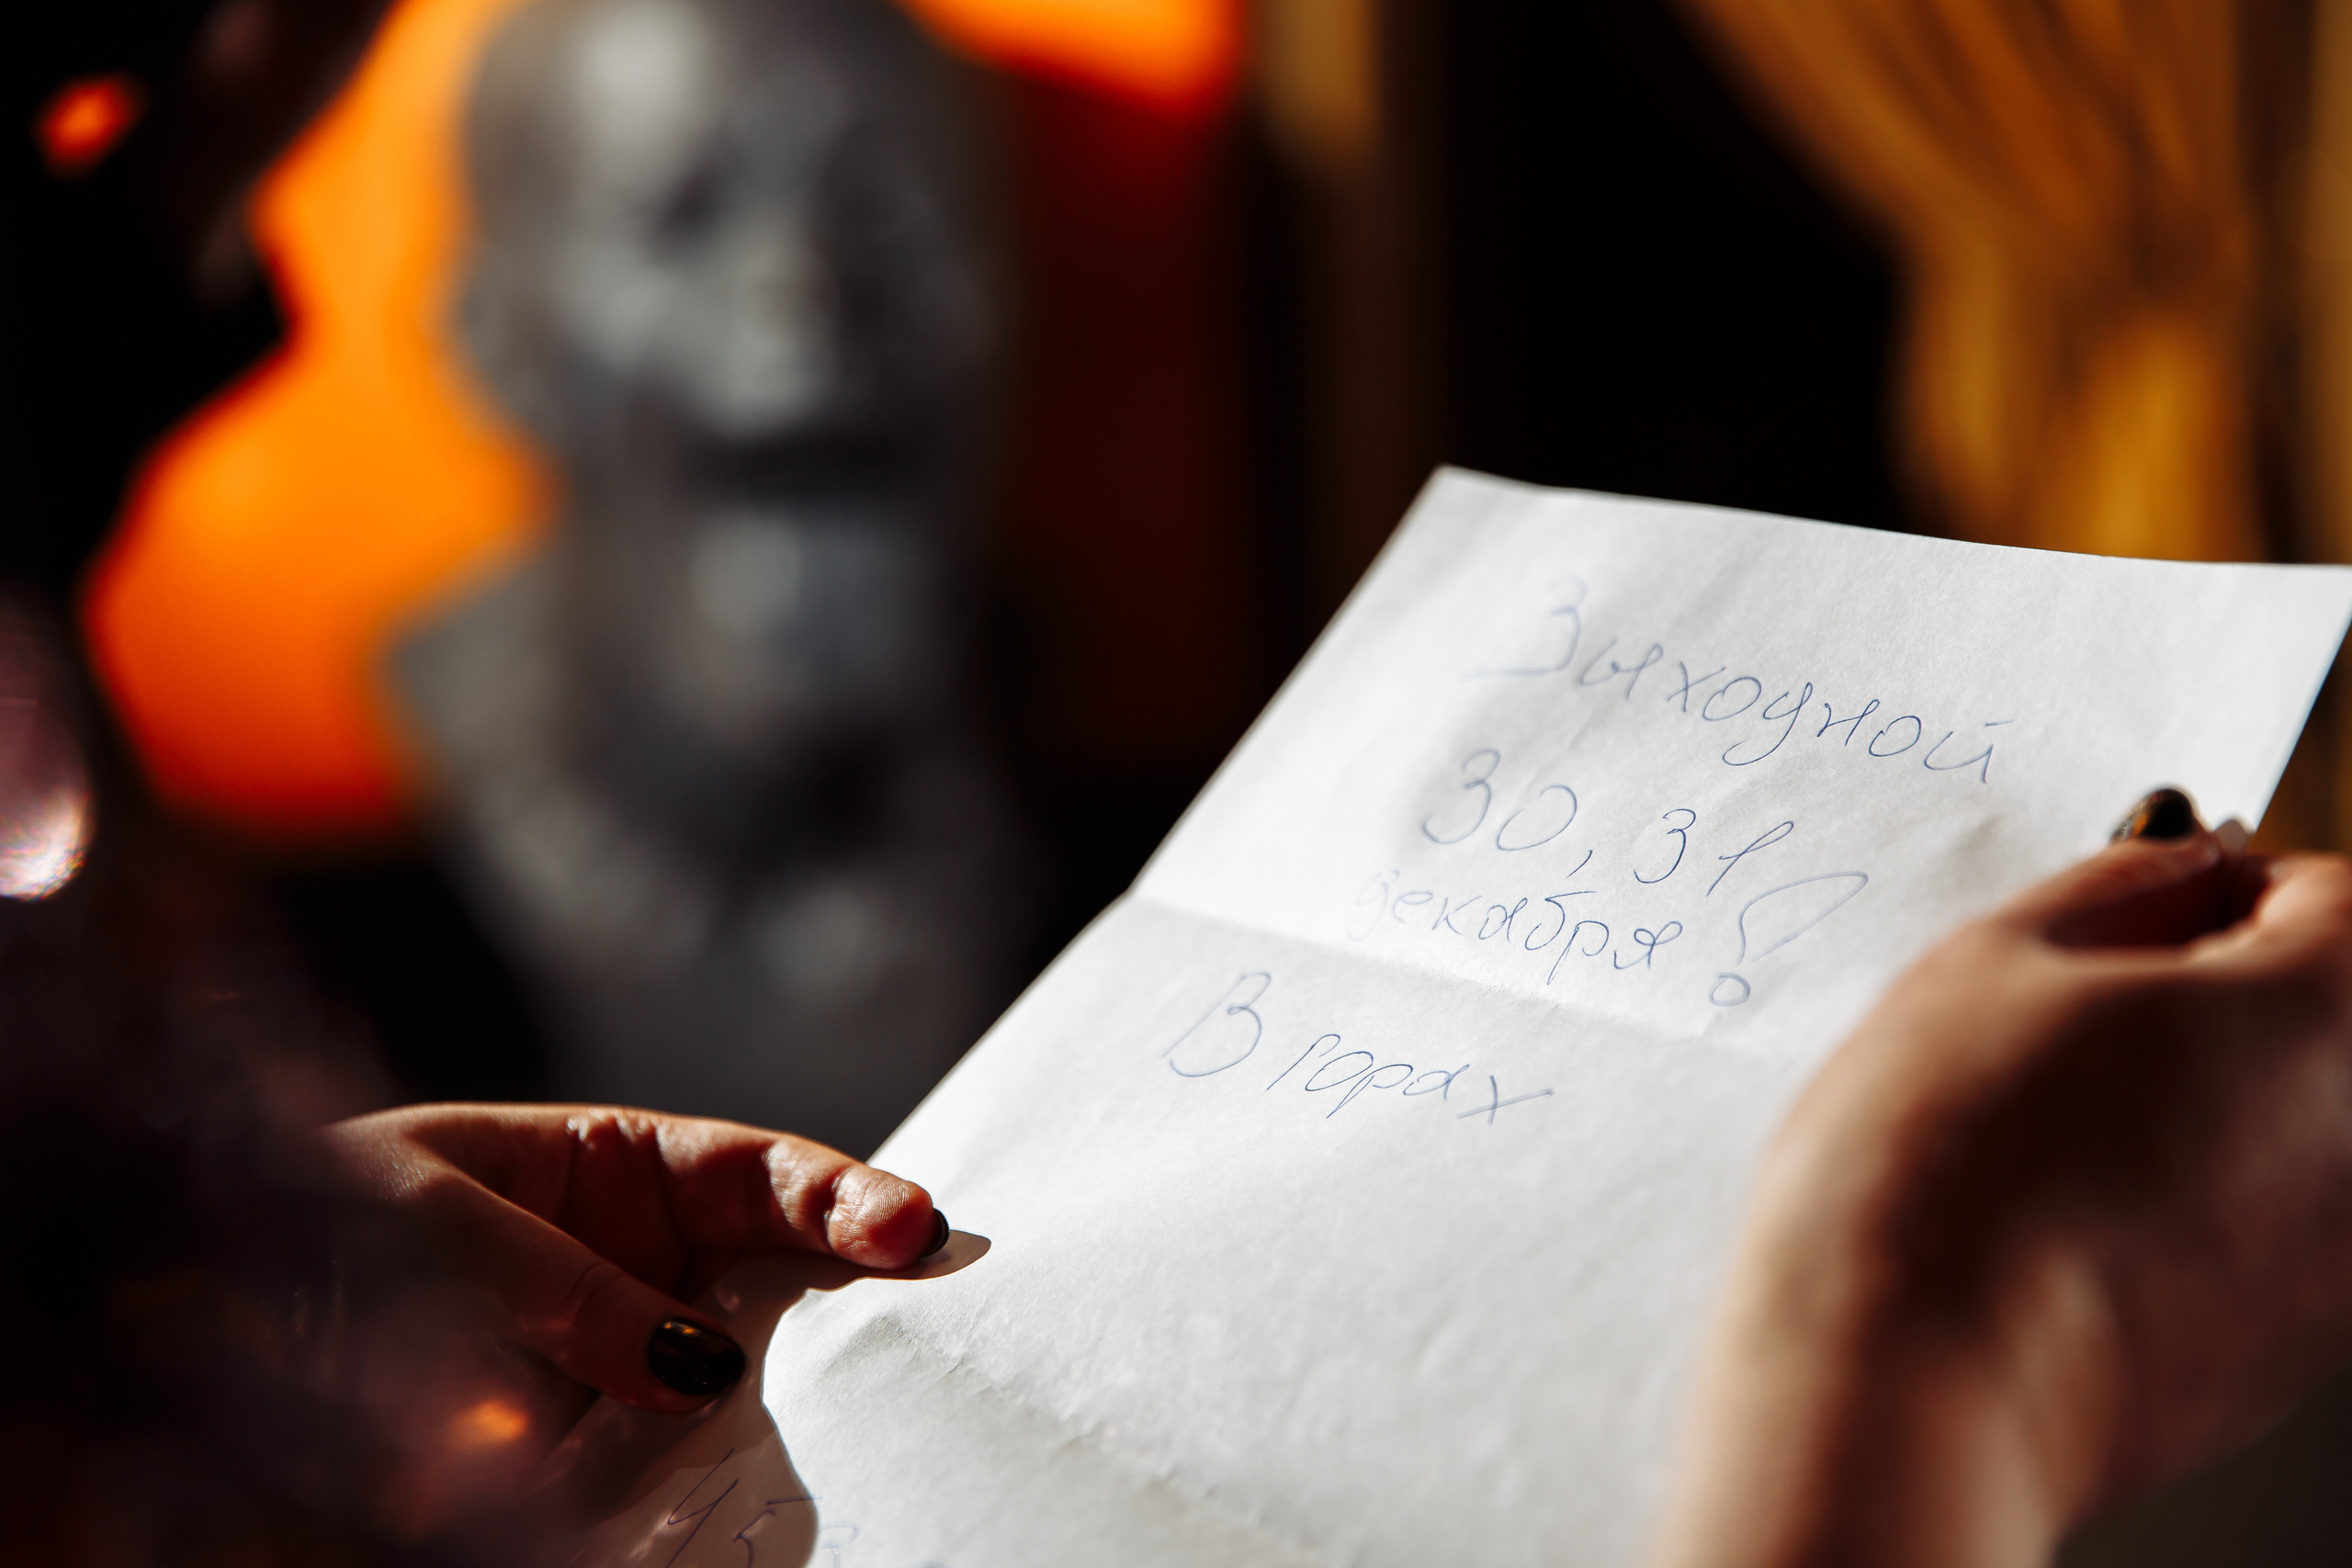 Выходной
30, 31
декабря!
В горах
45